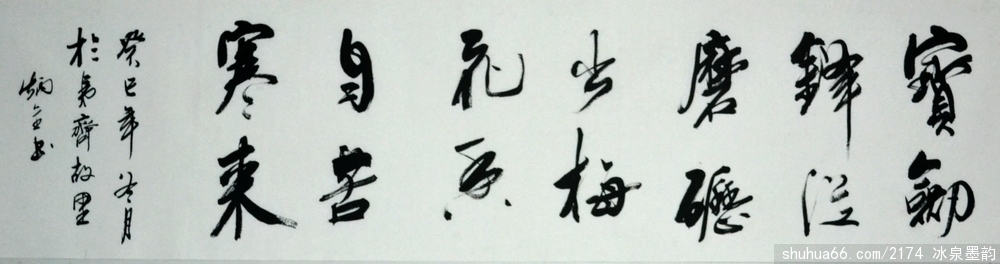 寳劍
鋒從
磨礪
出梅
花香
自苦
寒来
癸巳年冬月
於夷齊故里
炳立书
shuhua66.com/2174 冰泉墨韵